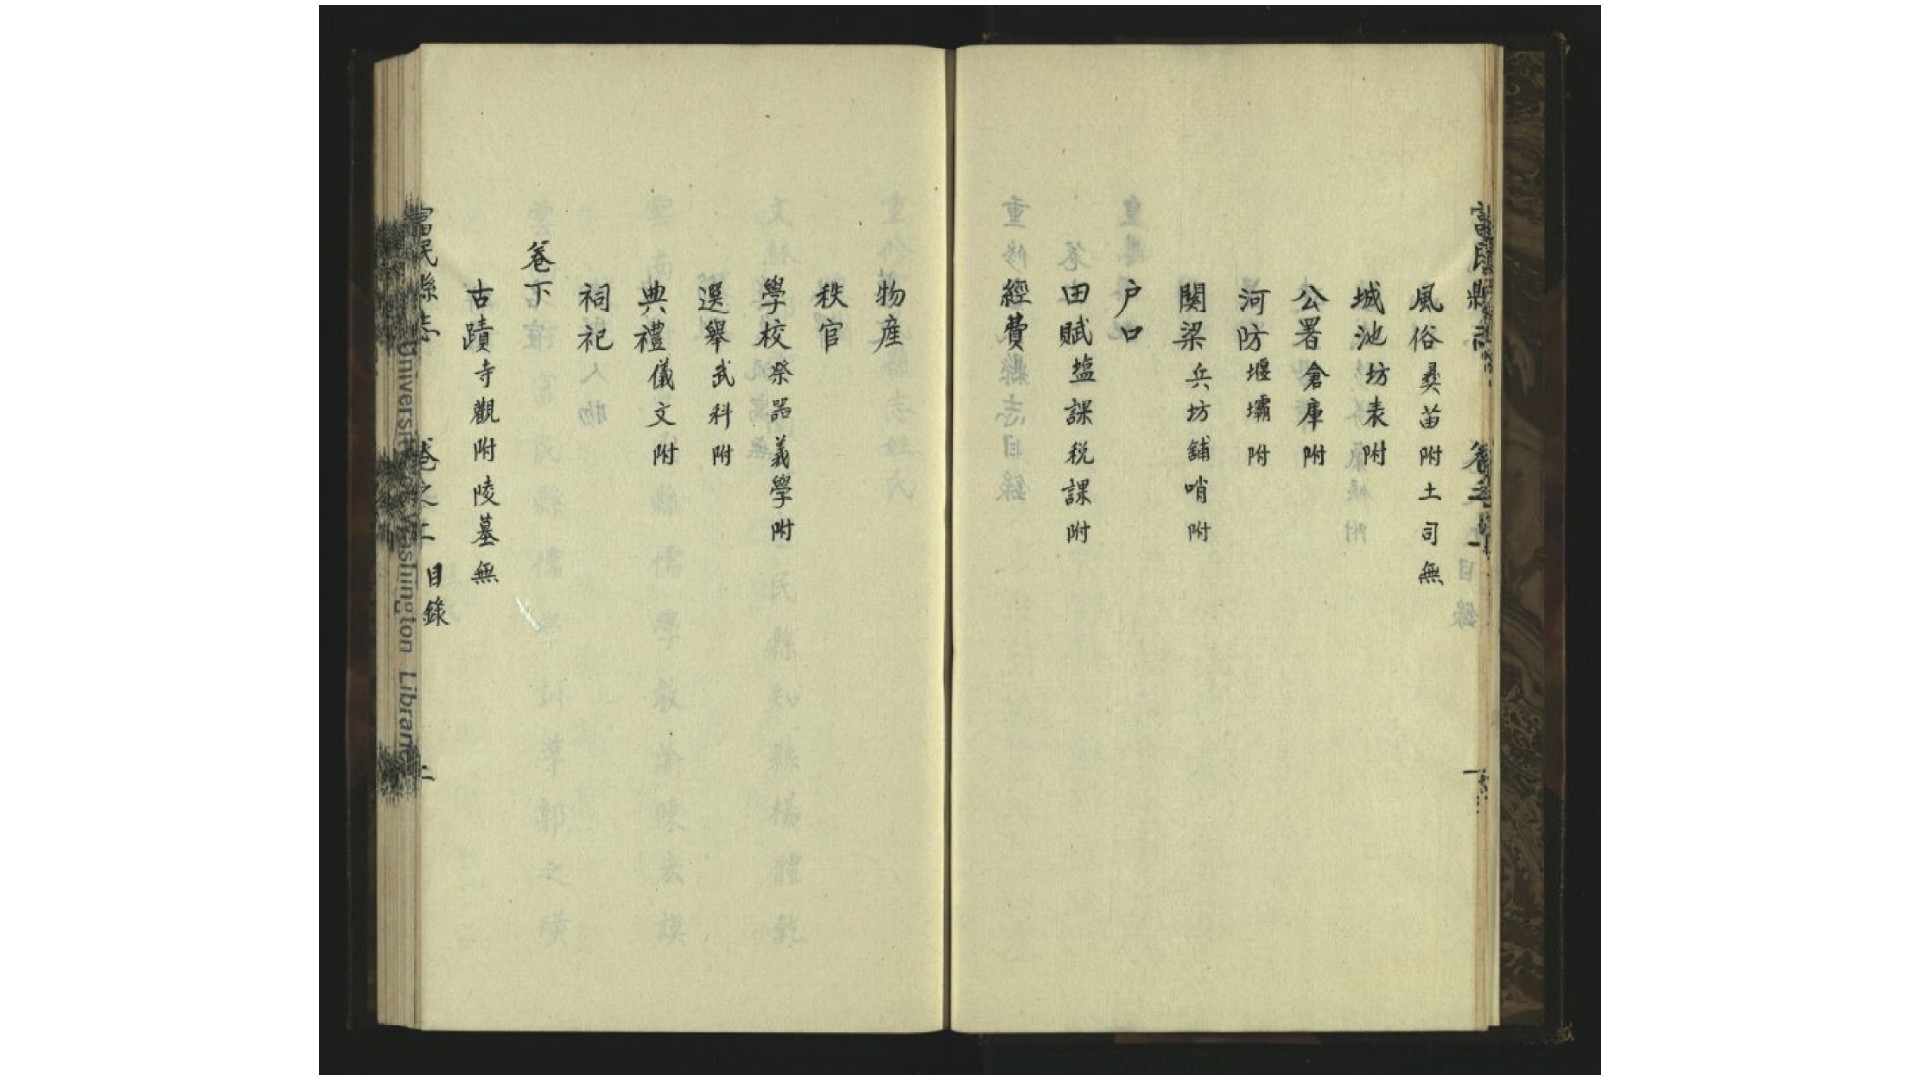 富民縣志 卷之 一
風俗 彝苗附土司無
城池 坊表附
公署 倉庫附
河防 堰壩附
関梁 兵坊舖哨附
户口
田賦 塩課税課附
經費
物産
秩官
學校 祭器義學附
選舉 武科附
典禮 儀文附
祠祀
卷下
古蹟 寺觀附陵墓無
富民縣志 卷之 目錄 二
University of Washington Libraries